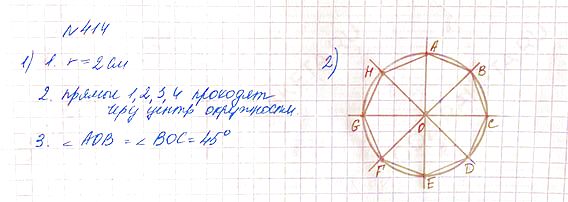 №414
1) 1. r = 2 см
2. прямые 1, 2, 3, 4 проходят
через центр окружности
3. ∠ AOB = ∠ BOC = 45°
2)
A
H
B
G
O
C
F
D
E